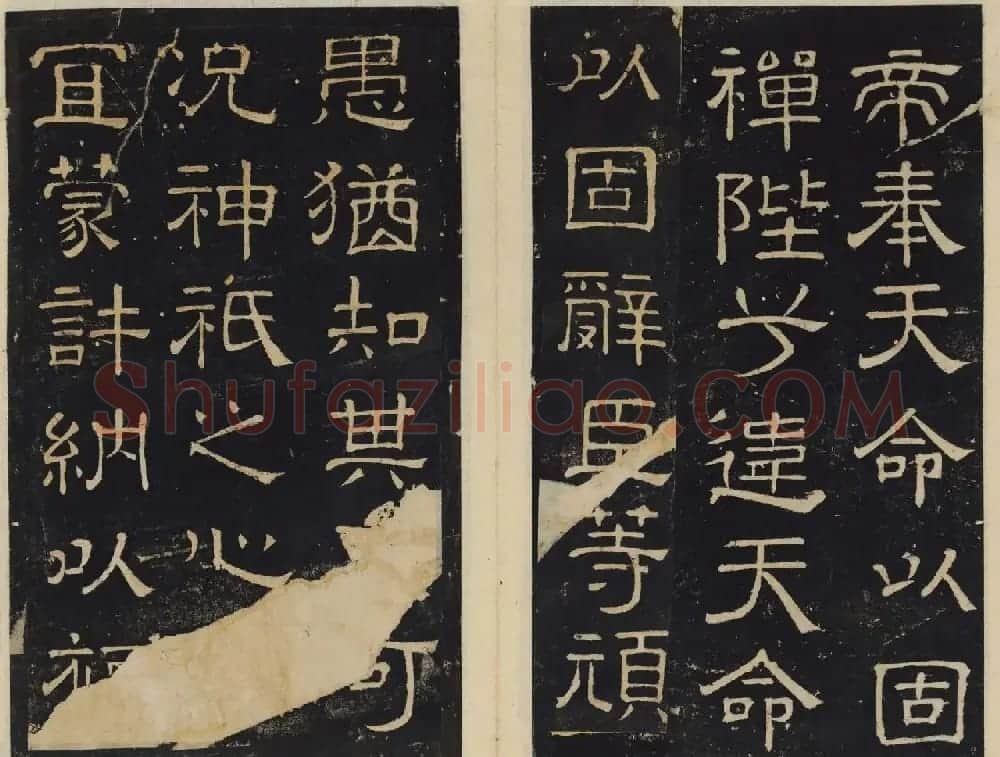 帝奉天命以固
禪陛下違天命
以固辭臣等頑
愚猶知其可
況神祇之心
宜蒙許納以
Shufaziliao.COM